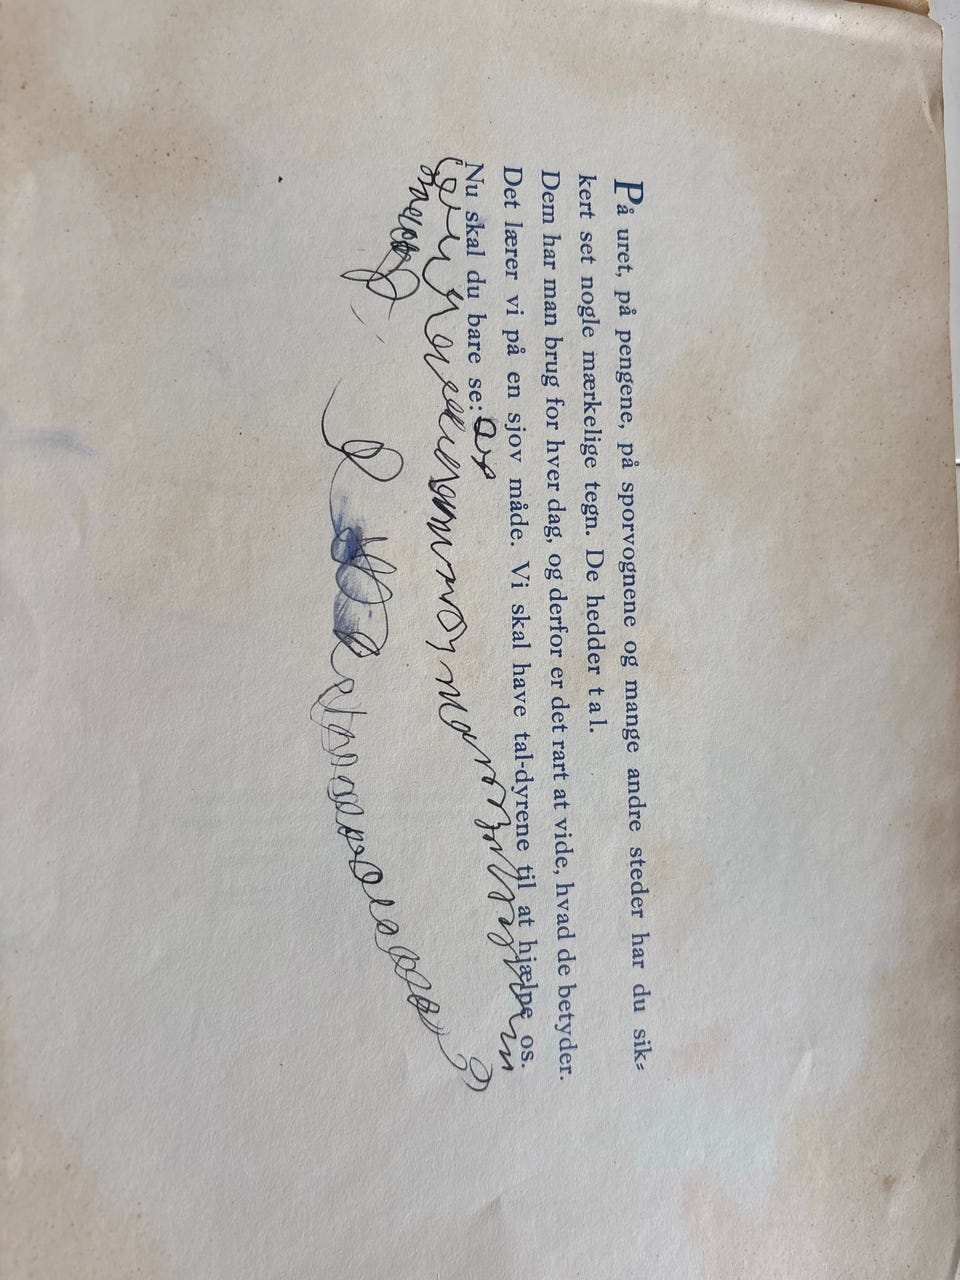 På uret, på pengene, på sporvognene og mange andre steder har du sik=
kert set nogle mærkelige tegn. De hedder tal.
Dem har man brug for hver dag, og derfor er det rart at vide, hvad de betyder.
Det lærer vi på en sjov måde. Vi skal have tal-dyrene til at hjælpe os.
Nu skal du bare se: